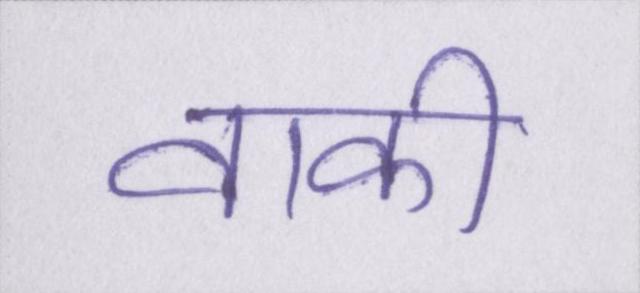 वाकी